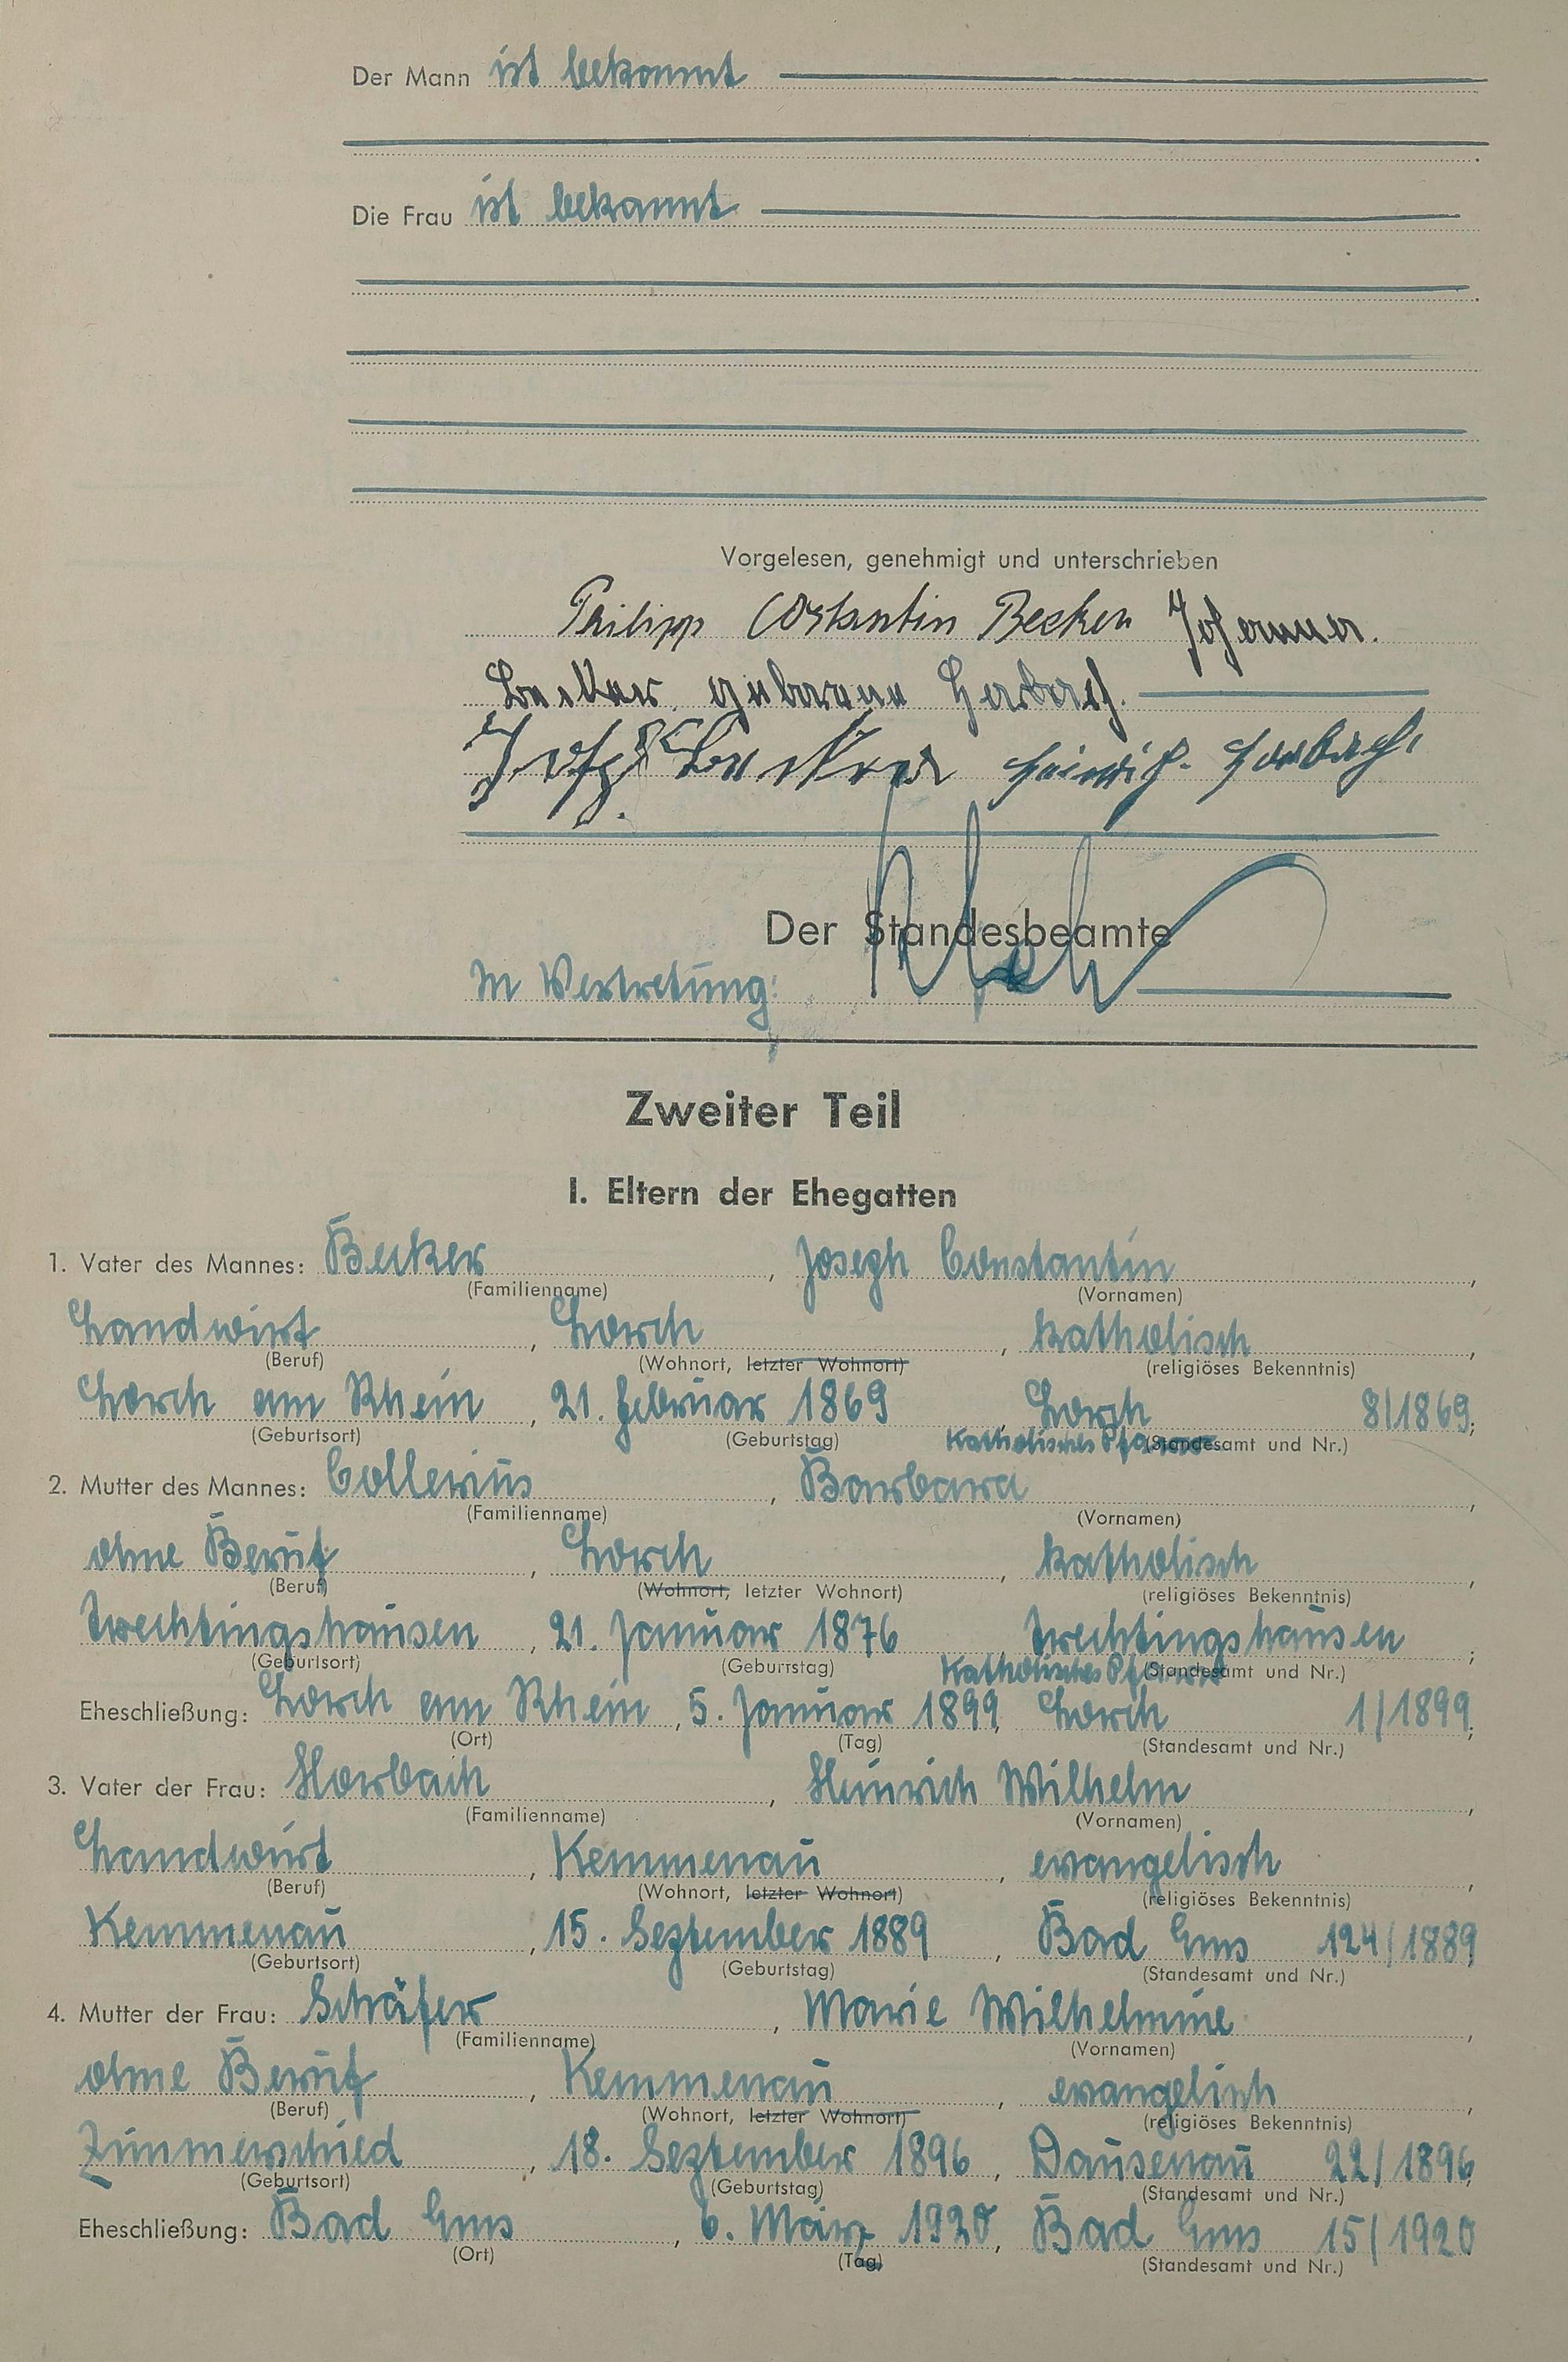 Der Mann ist bekannt
Die Frau ist bekannt
Vorgelesen, genehmigt und unterschrieben
Philipp Costantin Becker Johanna
Becker. geborene Horbach.
Josef Becker Heinrich Horbach
Der Standesbeamte
In Vertretung:
Zweiter Teil
I. Eltern der Ehegatten
1. Vater des Mannes: Becker, Joseph Constantin,
(Familienname) (Vornamen)
Landwirt, Lorch, katholisch,
(Beruf) (Wohnort, letzter Wohnort) (religiöses Bekenntnis)
Lorch am Rhein, 21. Februar 1869, Lorch 8/1869;
(Geburtsort) (Geburtstag) Katholisches Pfarramt (Standesamt und Nr.)
2. Mutter des Mannes: Collerius, Barbara
(Familienname) (Vornamen)
ohne Beruf, Lorch, katholisch,
(Beruf) (Wohnort, letzter Wohnort) (religiöses Bekenntnis)
Trechtingshausen, 21. Januar 1876 Trechtingshausen;
(Geburtsort) (Geburtstag) Katholisches Pfarramt (Standesamt und Nr.)
Eheschließung: Lorch am Rhein, 5. Januar 1899, Lorch 1/1899;
(Ort) (Tag) (Standesamt und Nr.)
3. Vater der Frau: Horbach, Heinrich Wilhelm,
(Familienname) (Vornamen)
Landwirt, Kemmenau, evangelisch,
(Beruf) (Wohnort, letzter Wohnort) (religiöses Bekenntnis)
Kemmenau, 15. September 1889, Bad Ems 124/1889;
(Geburtsort) (Geburtstag) (Standesamt und Nr.)
4. Mutter der Frau: Schäfer, Marie Wilhelmine,
(Familienname) (Vornamen)
ohne Beruf, Kemmenau, evangelisch,
(Beruf) (Wohnort, letzter Wohnort) (religiöses Bekenntnis)
Zimmerschied, 18. September 1896, Dausenau 22/1896;
(Geburtsort) (Geburtstag) (Standesamt und Nr.)
Eheschließung: Bad Ems, 6. März 1920, Bad Ems 15/1920
(Ort) (Tag) (Standesamt und Nr.)